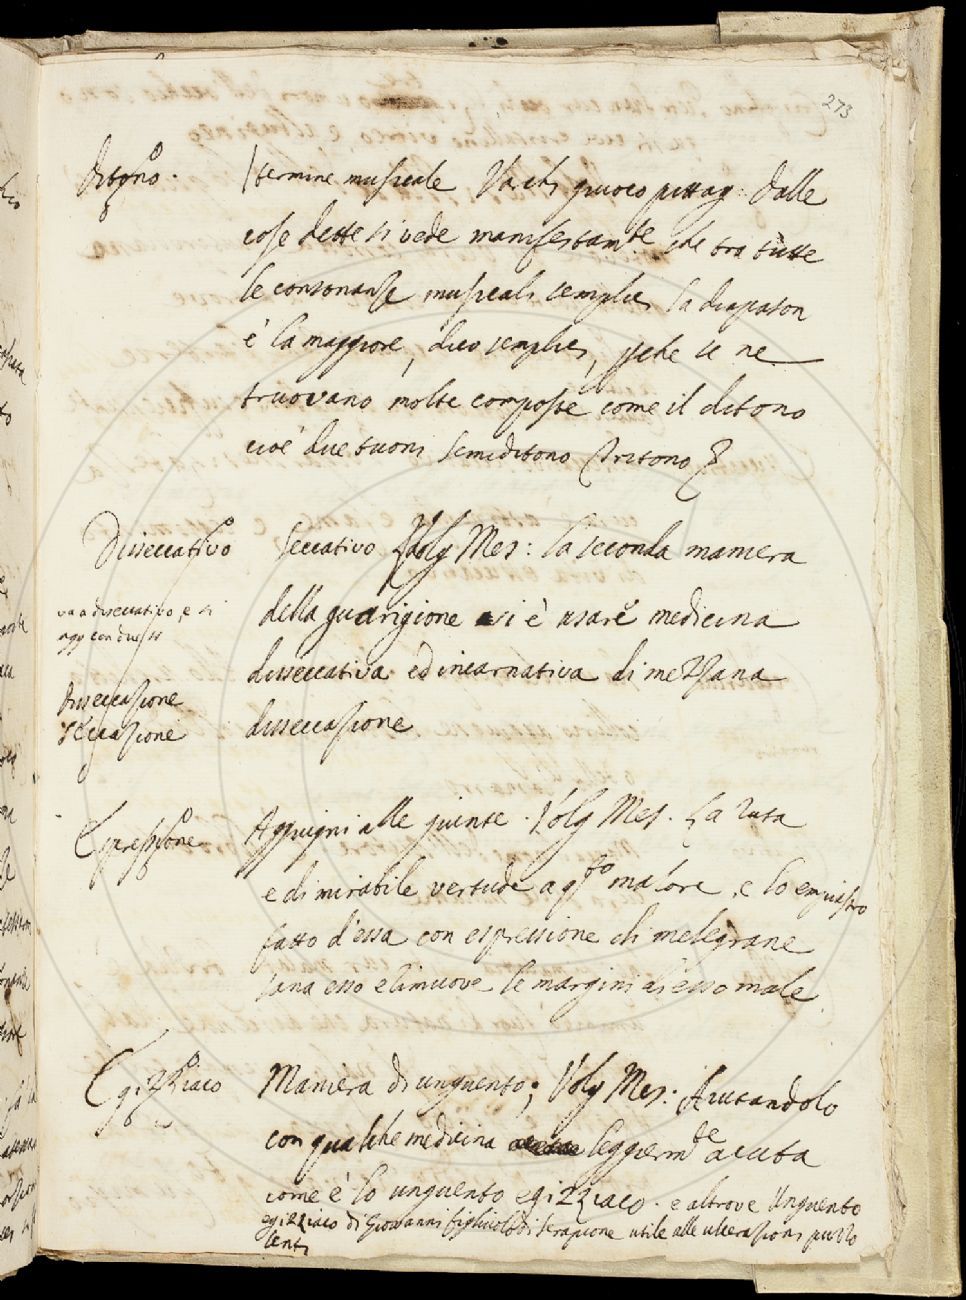 273
Ditono.
Termine musicale Varch giuoco pittag: Dalle
cose dette si vede manifestam.te che tra tutte
le consonanze musicali semplici la diapason
è la maggiore, dico semplici, pche se ne
truovano molte composte come il ditono
cioè due tuoni semiditono tritono
Disseccativo
seccativo Volg Mes: la seconda maniera
della guarigione si è usare medicina
disseccativa ed incarnativa di mezzana
disseccazione
va a diseccativo, e si
agg con due ss
Disseccazione
seccazione
Espressione
Aggiugni alle giunte. Volg Mes. La Ruta
e di mirabile vertude a q.sto malore, e lo empiastro
fatto d'essa con espressione di melegrane
sana esso e rimuove le margini di esso male
Egizziaco
Maniera di unguento; Volg Mes. Aiutandolo
con qualche medicina leggierm.te acuta
come è lo unguento egizziaco. e altrove Unguento
egizziaco di Giovanni figliuolo di serapione utile alle ulcerazioni puzzo
lenti